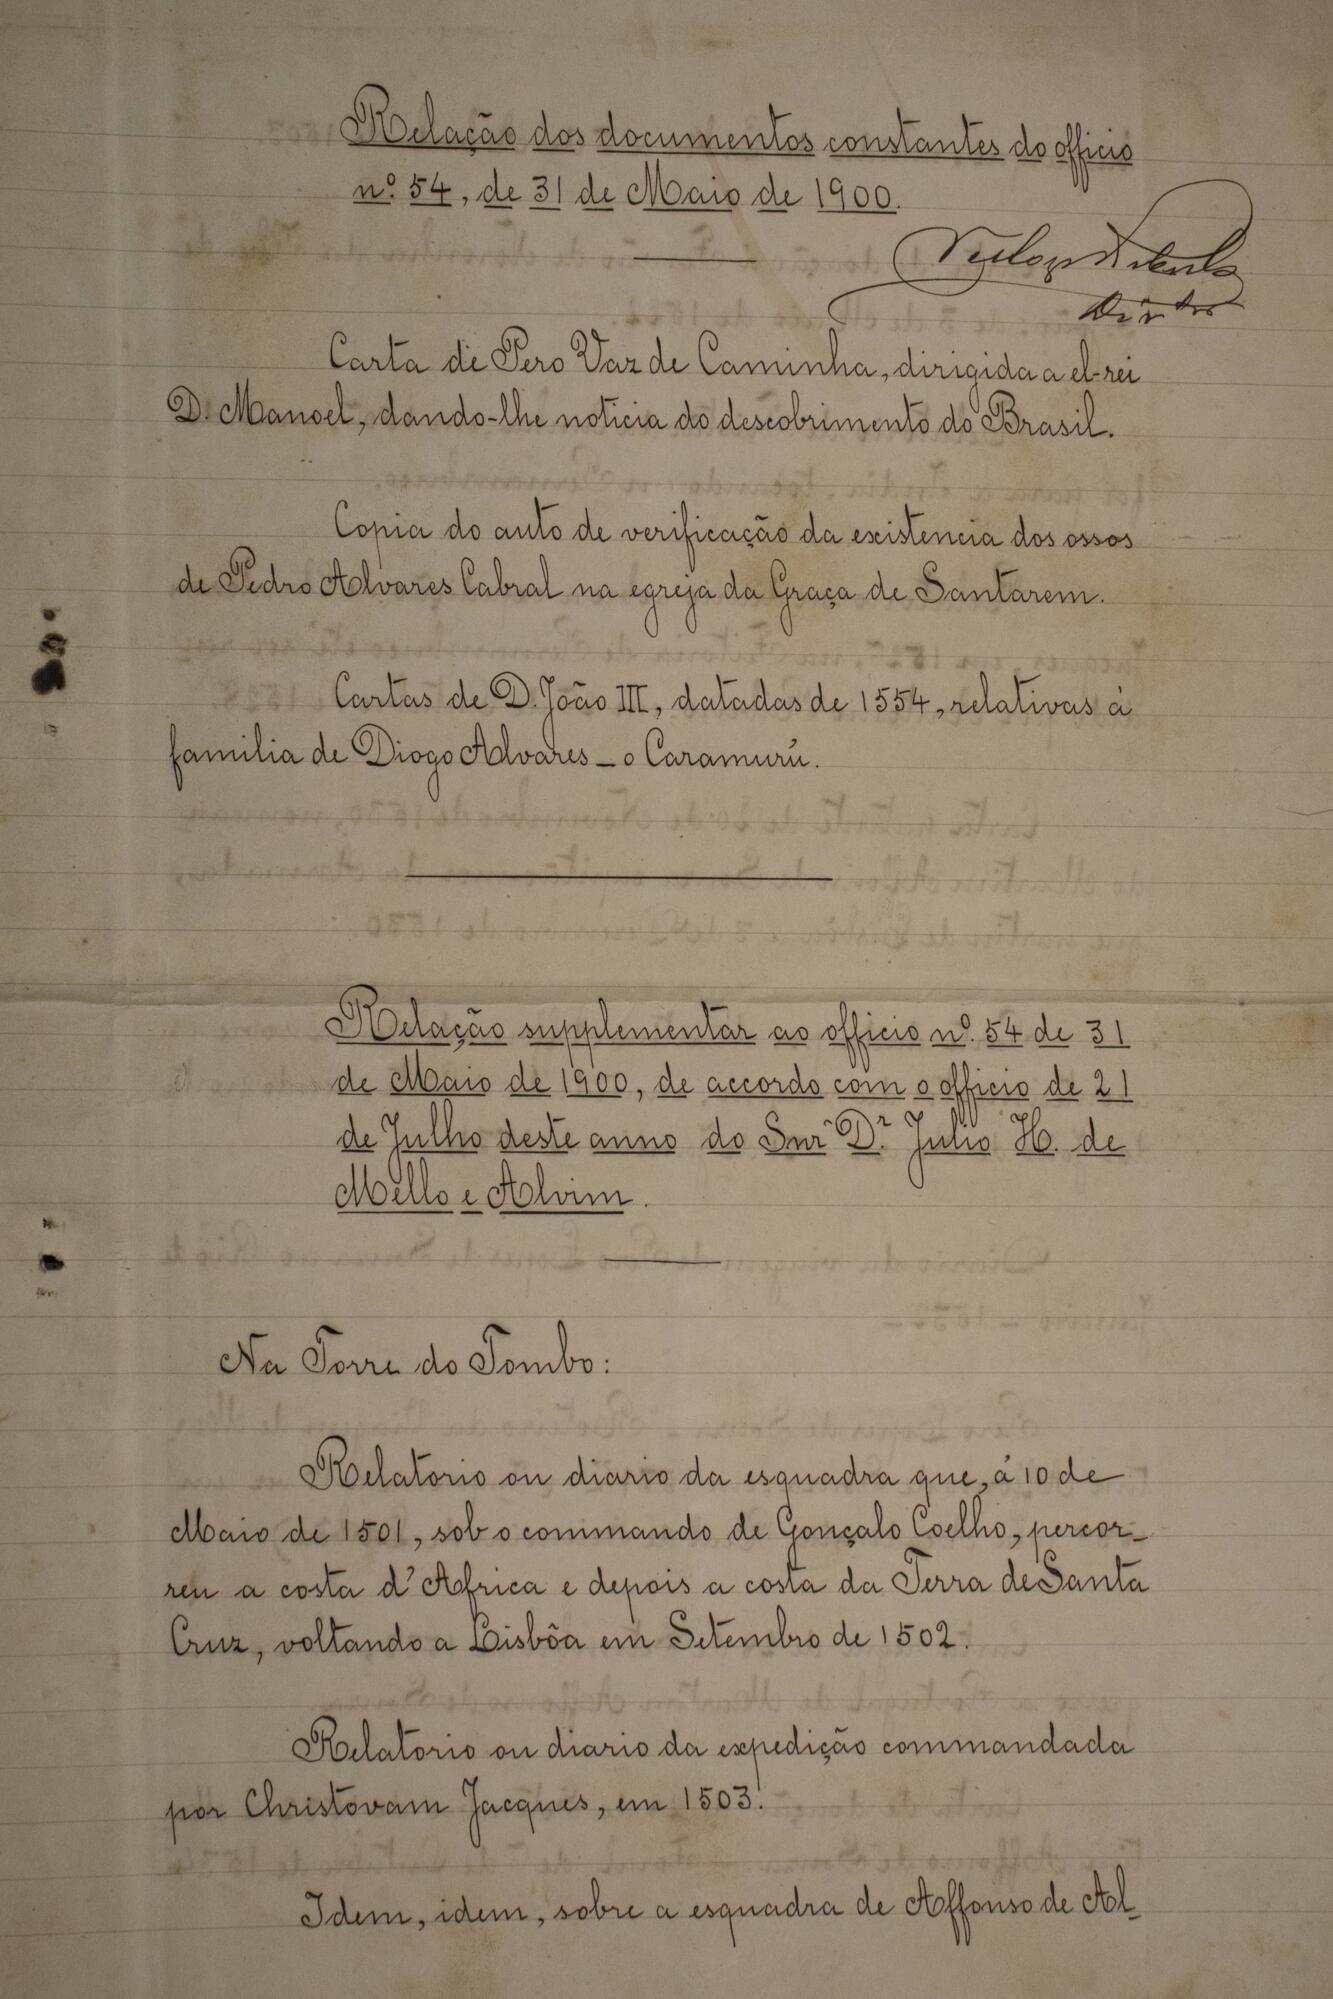 Relação dos documentos constantes do officio
nº. 54, de 31 de Maio de 1900.
Director
Carta de Pero Vaz de Caminha, dirigida a el-rei
D. Manoel, dando-lhe noticia do descobrimento do Brasil.
Copia do auto de verificação da existencia dos ossos
de Pedro Alvares Cabral na egreja da Graça de Santarem.
Cartas de D. João III, datadas de 1554, relativas á
familia de Diogo Alvares _ o Caramurú.
Relação supplementar ao officio nº. 54 de 31
de Maio de 1900, de accordo com o officio de 21
de Julho deste anno do Snr Dr. Julio H. de
Mello e Alvim.
Na Torre do Tombo:
Relatorio ou diario da esquadra que, á 10 de
Maio de 1501, sob o commando de Gonçalo Coelho, percor_
reu a costa d'Africa e depois a costa da Terra de Santa
Cruz, voltando a Lisbôa em Setembro de 1502.
Relatorio ou diario da expedição commandada
por Christovam Jacques, em 1503.
Idem, idem, sobre a esquadra de Affonso de Al_